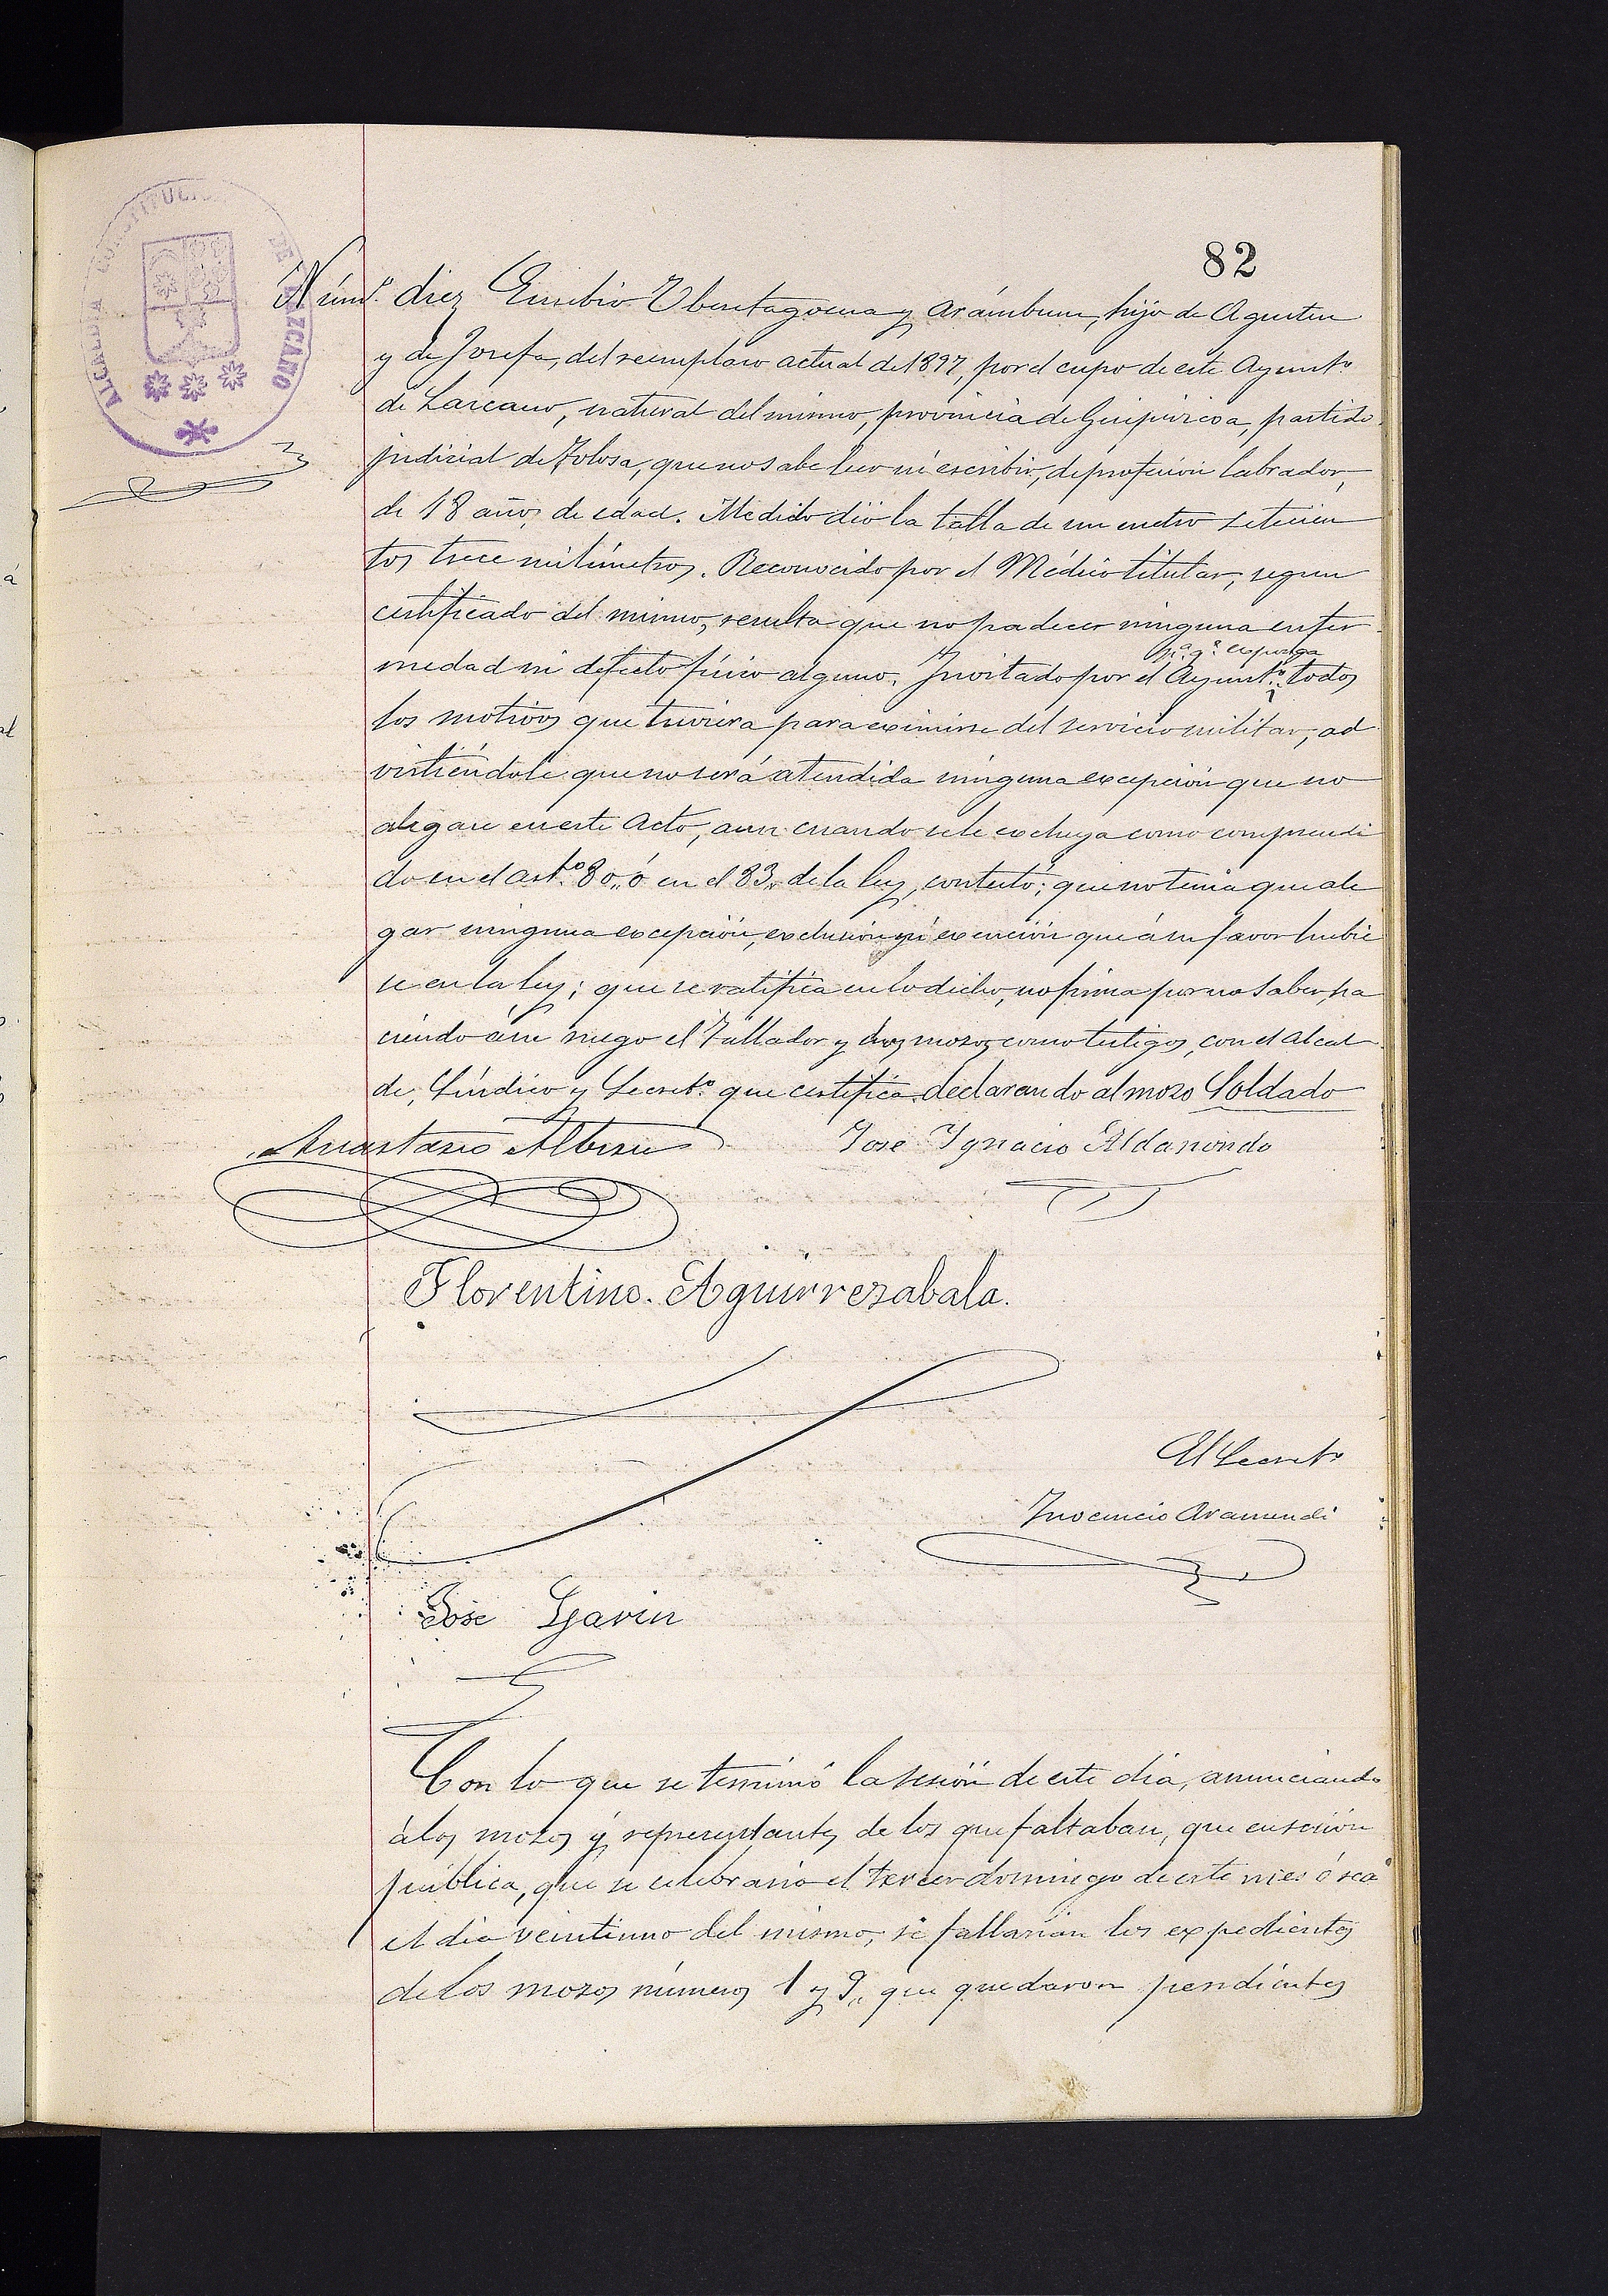 82
ALCALDIA CONSTITUCIONAL DE LAZCANO
Núm.º diez Eusebio Yberetagoena y Arámburu, hijo de Agustin
y de Josefa, del reemplazo actual de 1897, por el cupo de este Ayuntº
de Lazcano, natural del mismo, provincia de Guipúzcoa, partido
judicial de Tolosa, que no sabe leer ni escribir, de profesión labrador,
de 18 años de edad. Medido dió la talla de un metro setecien
tos trece milímetros. Reconocido por el Médico titular, segun
certificado del mismo, resulta que no padecer ninguna enfer
medad ni defecto físico alguno. Invitado por el Ayunt.º pª. qª. exponga todos
los motivos que tuviera para eximirse del servicio militar, ad
virtiéndole que no será atendida ninguna excepción que no
alegare en este acto, aun cuando se le excluya como comprendi
do en el art.º 80,, ó en el 83,, de la ley, contestó; que no tenia que ale
gar ninguna excepción, exclusión ni exención que á su favor hubie
se en la ley; que se ratifica en lo dicho, no firma por no saber, ha
ciendo á su ruego el Tallador y dos mozos como testigos, con el Alcal
de, Síndico y Secretº. que certifica. declarando al mozo Soldado
Anastasio Albisu José Ygnacio Aldanondo
Florentino. Aguirrezabala.
El Secretº
Inocencio Aramendi
José Gavin
Con lo que se terminó la sesión de este dia, anunciando
á los mozos y representantes de los que faltaban, que en sesión
pública, que se celebraria el tercer domingo de este mes ó sea
el dia veintiuno del mismo, se fallarian los expedientes
de los mozos números 1 y 9,, que quedaron pendientes